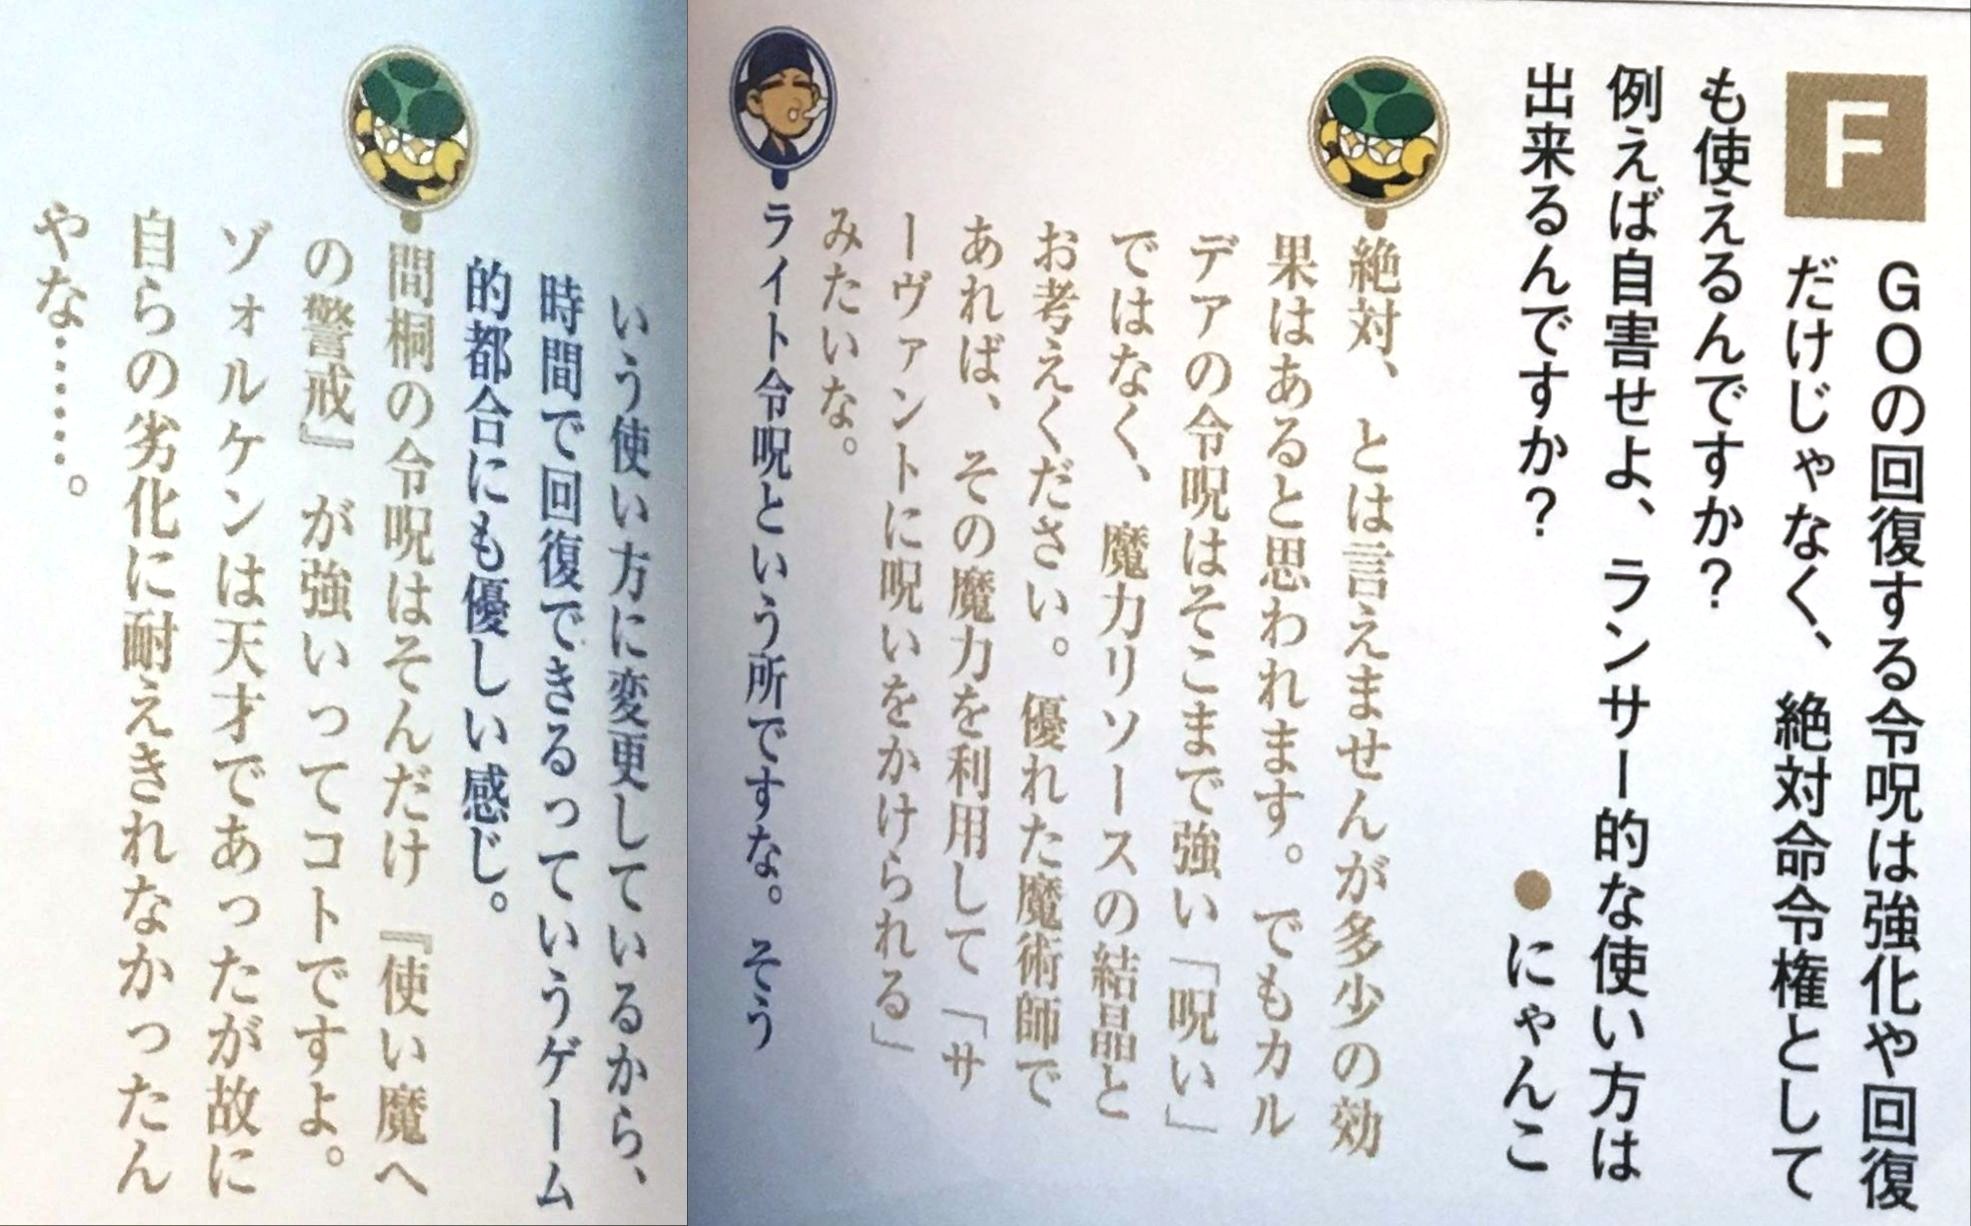 F
GOの回復する令呪は強化や回復
だけじゃなく、絶対命令権として
も使えるんですか？
例えば自害せよ、ランサー的な使い方は
出来るんですか？
●にゃんこ
絶対、とは言えませんが多少の効
果はあると思われます。でもカル
デアの令呪はそこまで強い「呪い」
ではなく、魔力リソースの結晶と
お考えください。優れた魔術師で
あれば、その魔力を利用して「サ
ーヴァントに呪いをかけられる」
みたいな。
ライト令呪という所ですな。そう
いう使い方に変更しているから、
時間で回復できるっていうゲーム
的都合にも優しい感じ。
間桐の令呪はそんだけ『使い魔へ
の警戒』が強いってコトですよ。
ゾォルケンは天才であったが故に
自らの劣化に耐えきれなかったん
やな……。